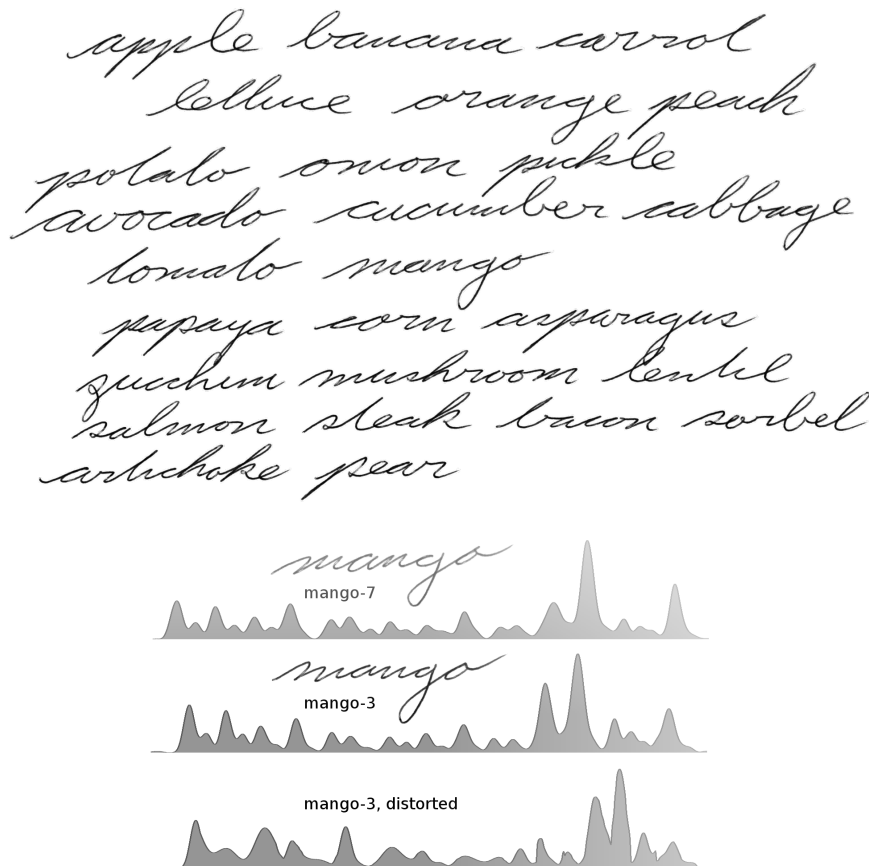 apple banana carrot
lettuce orange peach
potato onion pickle
avocado cucumber cabbage
tomato mango
papaya corn asparagus
zucchini mushroom lentil
salmon steak bacon sorbet
artichoke pear
mango
mango-7
mango
mango-3
mango-3, distorted